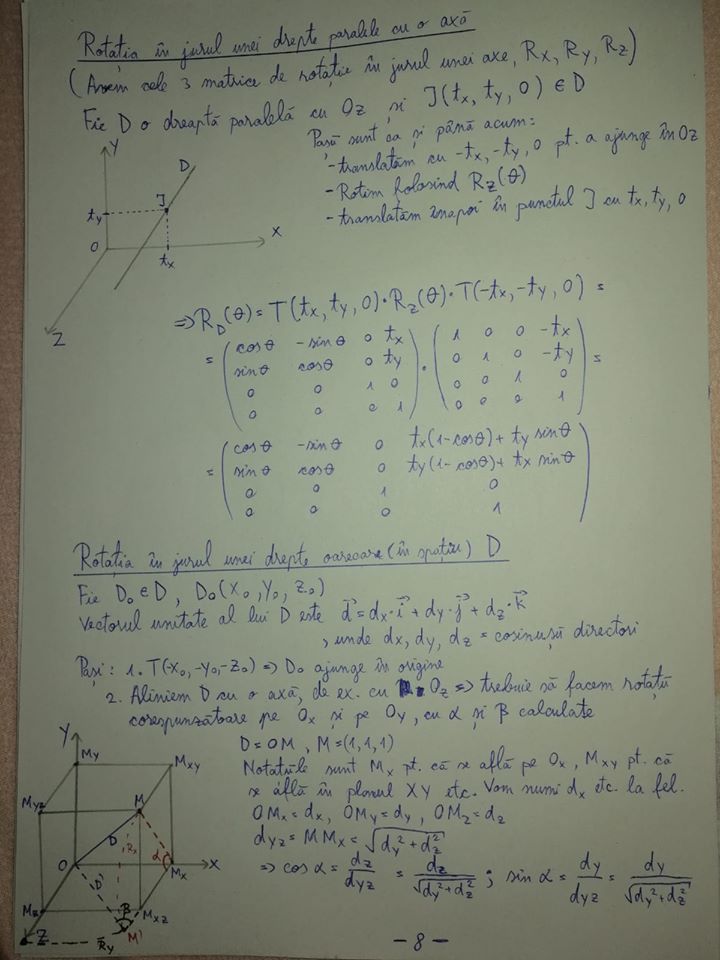 Rotația în jurul unei drepte paralele cu o axă
(Avem cele 3 matrice de rotație în jurul unei axe, Rx, Ry, Rz)
Fie D o dreaptă paralelă cu Oz și J(tx, ty, 0) ∈ D
Pașii sunt ca și până acum:
- translatăm cu -tx, -ty, 0 pt. a ajunge în Oz
- Rotim folosind Rz(θ)
- translatăm înapoi în punctul J cu tx, ty, 0
Y
D
ty
J
O
tx
X
Z
=> R_D(θ) = T(tx, ty, 0) · Rz(θ) · T(-tx, -ty, 0) =
= ( cos θ -sin θ 0 tx ) · ( 1 0 0 -tx ) =
sin θ cos θ 0 ty 0 1 0 -ty
0 0 1 0 0 0 1 0
0 0 0 1 0 0 0 1
= ( cos θ -sin θ 0 tx(1-cosθ)+ ty sin θ )
sin θ cos θ 0 ty(1-cosθ)+ tx sin θ
0 0 1 0
0 0 0 1
Rotația în jurul unei drepte oarecare (în spațiu) D
Fie D₀ ∈ D, D₀(x₀, y₀, z₀)
Vectorul unitate al lui D este d⃗ = dx · i⃗ + dy · j⃗ + dz · k⃗
, unde dx, dy, dz = cosinușii directori
Pași: 1. T(-x₀, -y₀, -z₀) => D₀ ajunge în origine
2. Aliniem D cu o axă, de ex. cu Oz => trebuie să facem rotații
corespunzătoare pe Ox și pe Oy, cu α și β calculate
D = OM, M = (1,1,1)
Notațiile sunt Mx pt. că se află pe Ox, Mxy pt. că
se află în planul XY etc. Vom numi dx etc. la fel.
OMx = dx, OMy = dy, OMz = dz
dyz = MMx = √(dy² + dz²)
=> cos α = dz/dyz = dz/√(dy² + dz²) ; sin α = dy/dyz = dy/√(dy² + dz²)
Y
My
Mxy
Myz
M
D
Rx
α
O
Mx
X
D'
Mz
β
Mxz
Z
Ry
M'
- 8 -